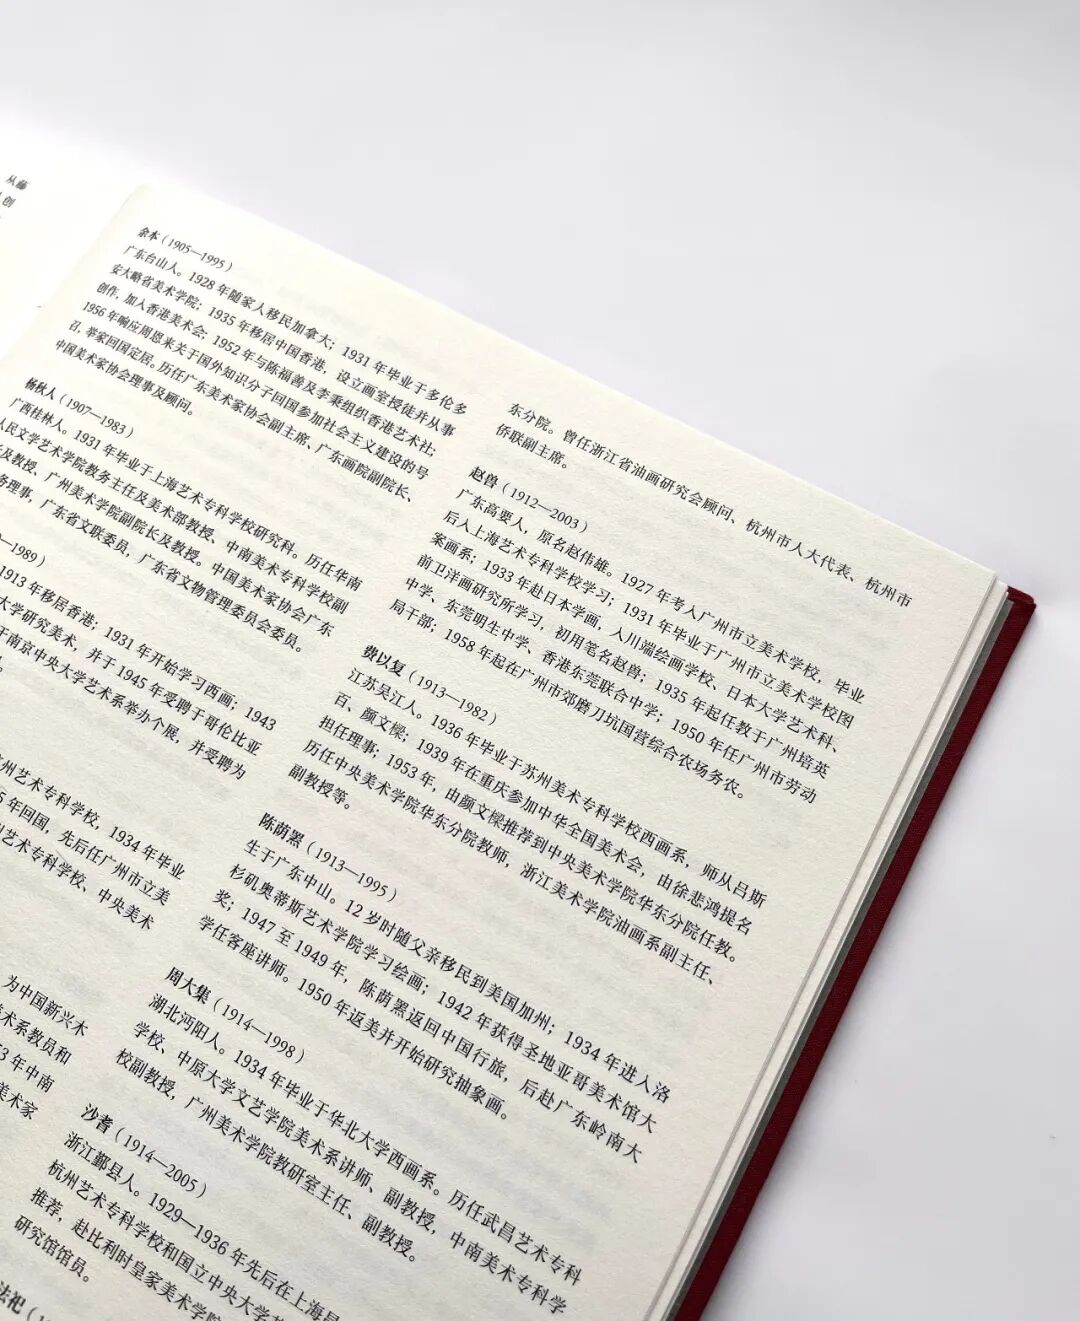 从薛
创
余本（1905—1995）
广东台山人。1928 年随家人移民加拿大；1931 年毕业于多伦多
安大略省美术学院；1935 年移居中国香港，设立画室授徒并从事
创作，加入香港美术会；1952 年与陈福善及李秉组织香港艺术社；
1956 年响应周恩来关于国外知识分子回国参加社会主义建设的号
召，举家回国定居。历任广东美术家协会副主席、广东画院副院长、
中国美术家协会理事及顾问。
杨秋人（1907—1983）
广西桂林人。1931 年毕业于上海艺术专科学校研究科。历任华南
人民文学艺术学院教务主任及美术部教授、中南美术专科学校副
及教授、广州美术学院副院长及教授。中国美术家协会广东
务理事，广东省文联委员，广东省文物管理委员会委员。
—1989）
1913 年移居香港；1931 年开始学习西画；1943
大学研究美术，并于 1945 年受聘于哥伦比亚
于南京中央大学艺术系举办个展，并受聘为
州艺术专科学校，1934 年毕业
5 年回国，先后任广州市立美
艺术专科学校、中央美术
为中国新兴木
美术系教员和
3 年中南
美术家
东分院。曾任浙江省油画研究会顾问、杭州市人大代表、杭州市
侨联副主席。
赵兽（1912—2003）
广东高要人，原名赵伟雄。1927 年考入广州市立美术学校，毕业
后入上海艺术专科学校学习；1931 年毕业于广州市立美术学校图
案画系；1933 年赴日本学画，入川端绘画学校、日本大学艺术科、
前卫洋画研究所学习，初用笔名赵兽；1935 年起任教于广州培英
中学、东莞明生中学、香港东莞联合中学；1950 年任广州市劳动
局干部；1958 年起在广州市郊磨刀坑国营综合农场务农。
费以复（1913—1982）
江苏吴江人。1936 年毕业于苏州美术专科学校西画系，师从吕斯
百、颜文樑；1939 年在重庆参加中华全国美术会，由徐悲鸿提名
担任理事；1953 年，由颜文樑推荐到中央美术学院华东分院任教。
历任中央美术学院华东分院教师，浙江美术学院油画系副主任、
副教授等。
陈荫罴（1913—1995）
生于广东中山。12 岁时随父亲移民到美国加州；1934 年进入洛
杉矶奥蒂斯艺术学院学习绘画；1942 年获得圣地亚哥美术馆大
奖；1947 至 1949 年，陈荫罴返回中国行旅，后赴广东岭南大
学任客座讲师。1950 年返美并开始研究抽象画。
周大集（1914—1998）
湖北沔阳人。1934 年毕业于华北大学西画系。历任武昌艺术专科
学校、中原大学文艺学院美术系讲师、副教授，中南美术专科学
校副教授，广州美术学院教研室主任、副教授。
沙耆（1914—2005）
浙江鄞县人。1929—1936 年先后在上海昌
杭州艺术专科学校和国立中央大学
推荐，赴比利时皇家美术学院
研究馆馆员。
法祀（